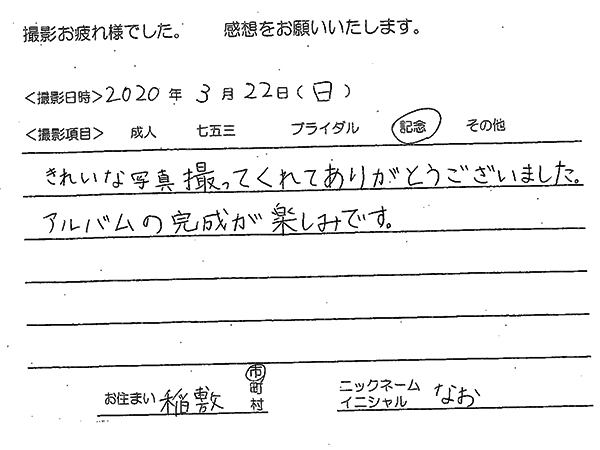 撮影お疲れ様でした。 感想をお願いいたします。
<撮影日時>2020 年 3 月 22日(日)
<撮影項目> 成人 七五三 ブライダル 記念 その他
きれいな写真撮ってくれてありがとうございました。
アルバムの完成が楽しみです。
お住まい 稲敷 市町村 ニックネーム イニシャル なお